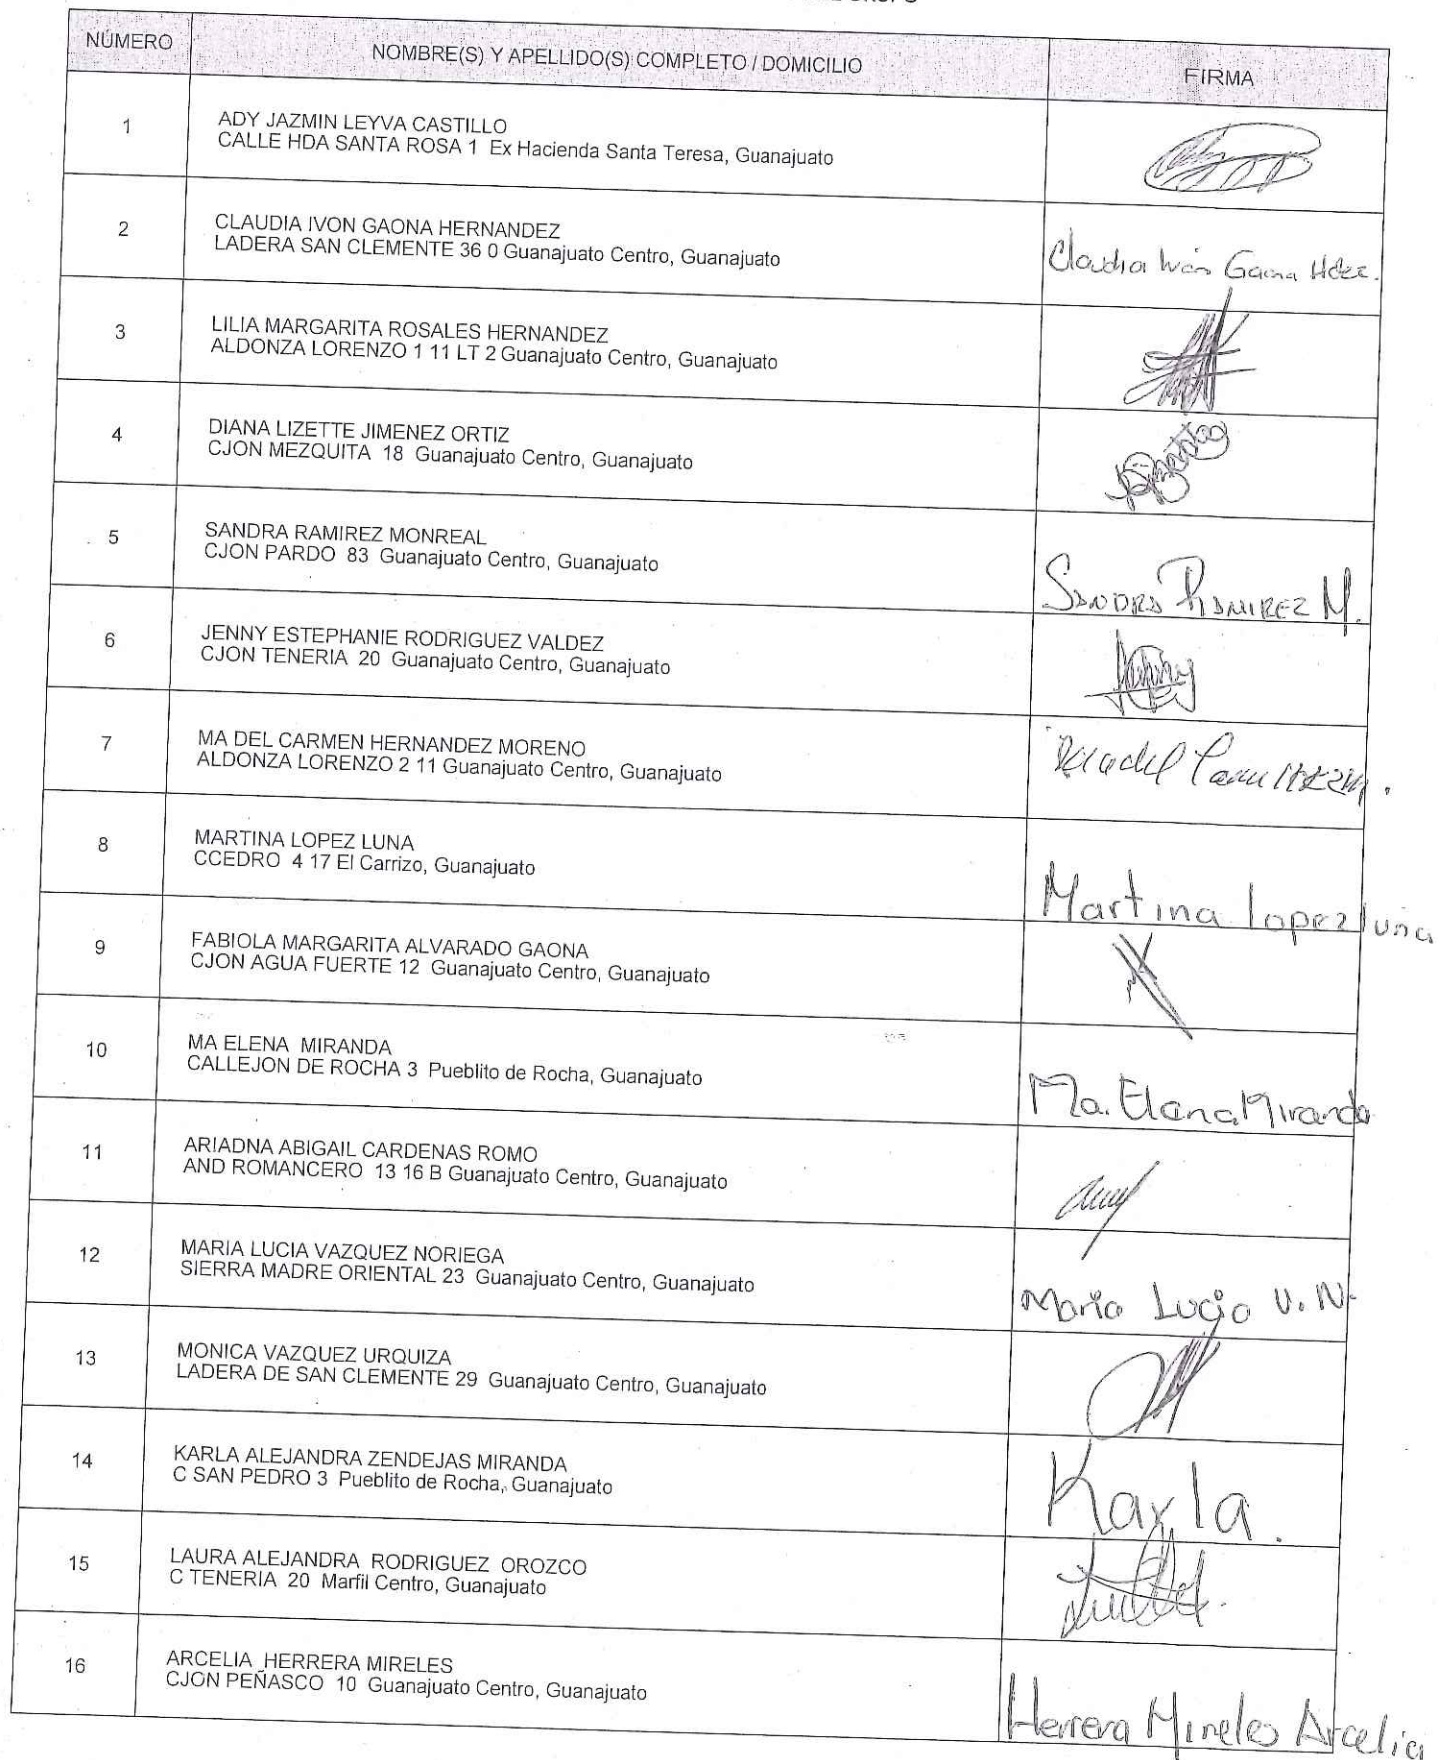 NÚMERO NOMBRE(S) Y APELLIDO(S) COMPLETO / DOMICILIO FIRMA
1 ADY JAZMIN LEYVA CASTILLO
CALLE HDA SANTA ROSA 1 Ex Hacienda Santa Teresa, Guanajuato
2 CLAUDIA IVON GAONA HERNANDEZ
LADERA SAN CLEMENTE 36 0 Guanajuato Centro, Guanajuato
Claudia Ivón Gaona Hdez.
3 LILIA MARGARITA ROSALES HERNANDEZ
ALDONZA LORENZO 1 11 LT 2 Guanajuato Centro, Guanajuato
4 DIANA LIZETTE JIMENEZ ORTIZ
CJON MEZQUITA 18 Guanajuato Centro, Guanajuato
5 SANDRA RAMIREZ MONREAL
CJON PARDO 83 Guanajuato Centro, Guanajuato
SANDRA RAMIREZ M.
6 JENNY ESTEPHANIE RODRIGUEZ VALDEZ
CJON TENERIA 20 Guanajuato Centro, Guanajuato
7 MA DEL CARMEN HERNANDEZ MORENO
ALDONZA LORENZO 2 11 Guanajuato Centro, Guanajuato
8 MARTINA LOPEZ LUNA
CCEDRO 4 17 El Carrizo, Guanajuato
Martina Lopez luna
9 FABIOLA MARGARITA ALVARADO GAONA
CJON AGUA FUERTE 12 Guanajuato Centro, Guanajuato
10 MA ELENA MIRANDA
CALLEJON DE ROCHA 3 Pueblito de Rocha, Guanajuato
Ma. Elena Miranda
11 ARIADNA ABIGAIL CARDENAS ROMO
AND ROMANCERO 13 16 B Guanajuato Centro, Guanajuato
12 MARIA LUCIA VAZQUEZ NORIEGA
SIERRA MADRE ORIENTAL 23 Guanajuato Centro, Guanajuato
Maria Lucia V. N.
13 MONICA VAZQUEZ URQUIZA
LADERA DE SAN CLEMENTE 29 Guanajuato Centro, Guanajuato
14 KARLA ALEJANDRA ZENDEJAS MIRANDA
C SAN PEDRO 3 Pueblito de Rocha, Guanajuato
Karla.
15 LAURA ALEJANDRA RODRIGUEZ OROZCO
C TENERIA 20 Marfil Centro, Guanajuato
16 ARCELIA HERRERA MIRELES
CJON PEÑASCO 10 Guanajuato Centro, Guanajuato
Herrera Mireles Arcelia